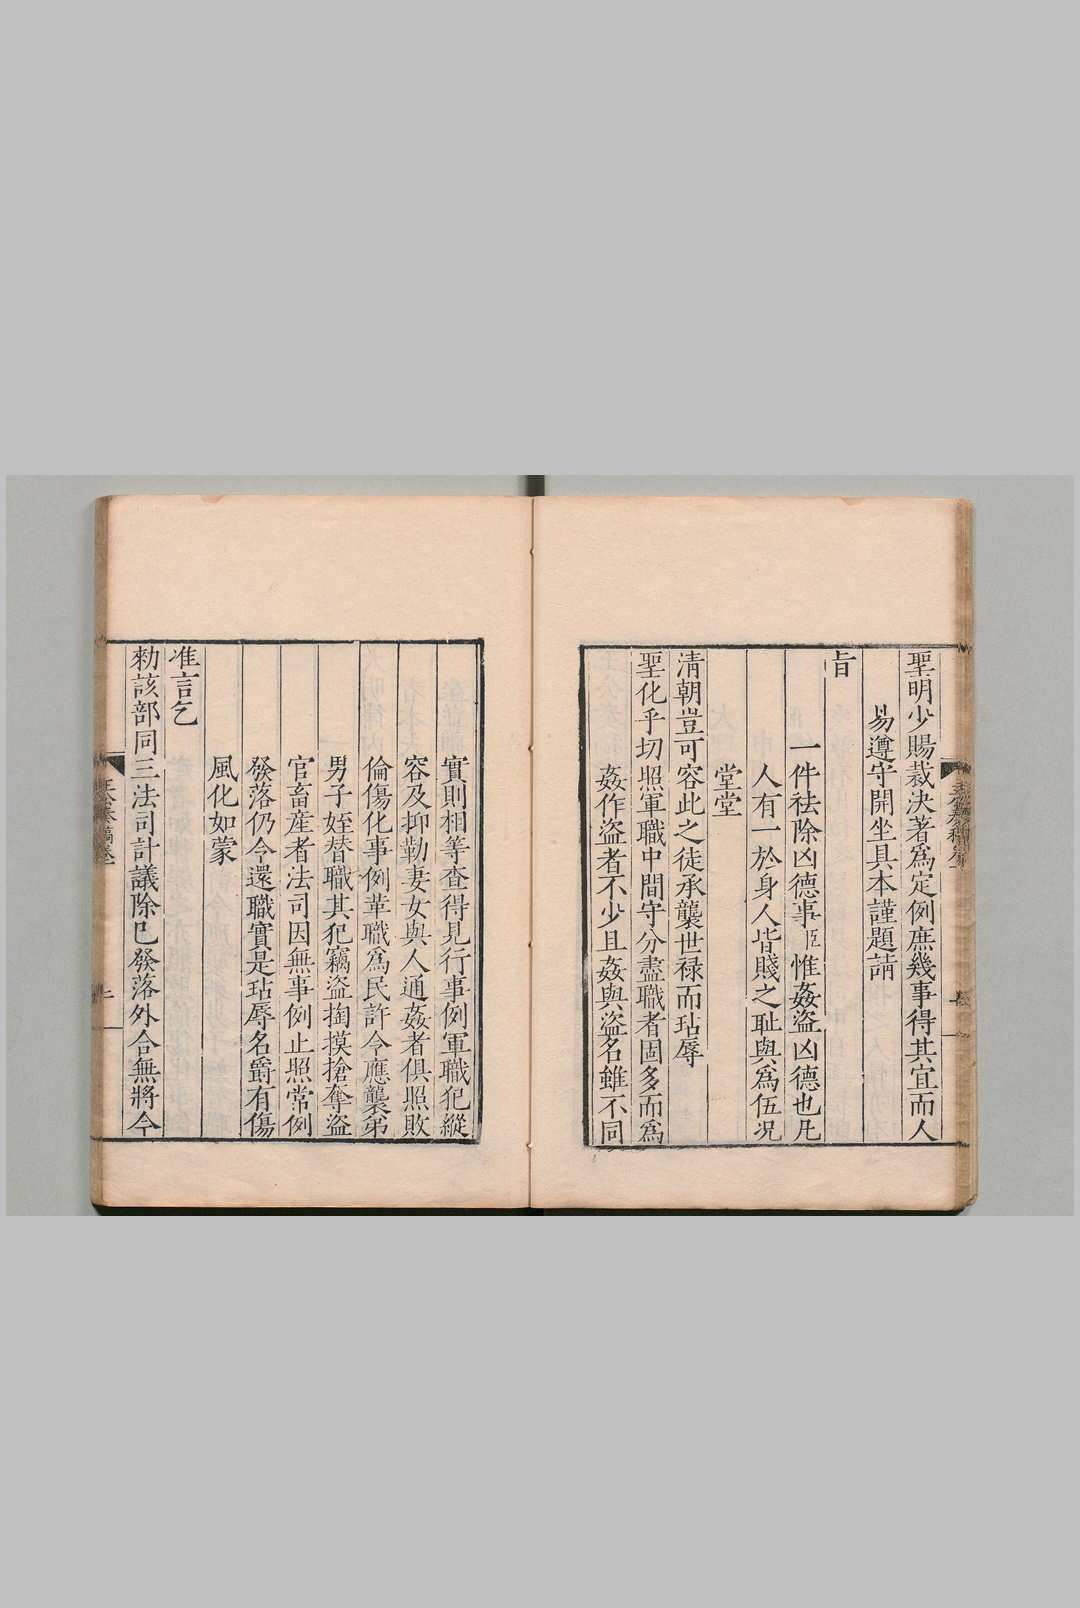 聖明少賜裁決著爲定例庶幾事得其宜而人
易遵守開坐具本謹題請
旨
一件祛除凶德事臣惟姦盜凶德也凡
人有一於身人皆賤之恥與爲伍况
堂堂
清朝豈可容此之徒承襲世禄而玷辱
聖化乎切照軍職中間守分盡職者固多而爲
姦作盜者不少且姦與盜名雖不同
實則相等查得見行事例軍職犯縱
容及抑勒妻女與人通姦者俱照敗
倫傷化事例革職爲民許令應襲弟
男子姪替職其犯竊盜掏摸搶奪盜
官畜産者法司因無事例止照常例
發落仍令還職實是玷辱名爵有傷
風化如蒙
准言乞
勑該部同三法司計議除已發落外合無將今
王公奏稿卷一